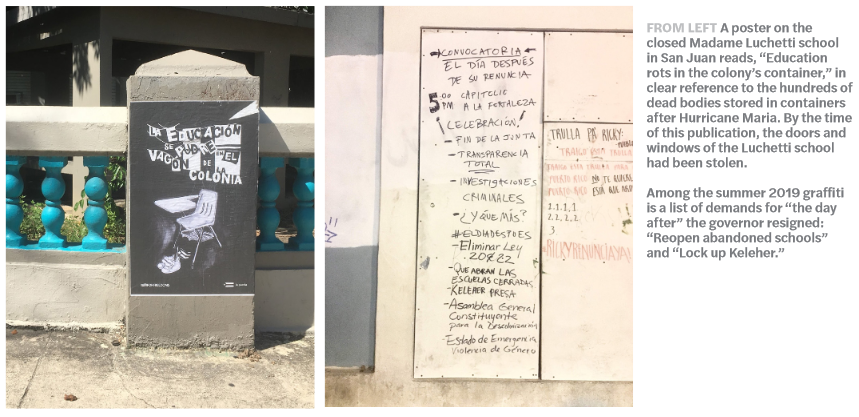 LA EDUCACIÓN
SE PUDRE EN EL
VAGÓN DE
LA
COLONIA
CONVOCATORIA
EL DÍA DESPUÉS
DE SU RENUNCIA
5:00 PM CAPITOLIO
A LA FORTALEZA
¡CELEBRACIÓN!
- FIN DE LA JUNTA
- TRANSPARENCIA
TOTAL
- INVESTIGACIONES
CRIMINALES
- ¿Y QUE MÁS?
#ELDIADESPUES
- Eliminar Ley
20 & 22
- QUE ABRAN LAS
ESCUELAS CERRADAS
- KELEHER PRESA
- Asamblea General
Constituyente
para la Descolonización
- Estado de Emergencia
Violencia de Género
TRULLA PA' RICKY:
TRAIGO ESTA TRULLA
TRAIGO ESTA TRULLA
PUERTO RICO NO TE
PUERTO RICO ESTÁ QUE
1.1.1.1
2.2.2.2
3
#RICKYRENUNCIAYA!
FROM LEFT A poster on the
closed Madame Luchetti school
in San Juan reads, “Education
rots in the colony’s container,” in
clear reference to the hundreds of
dead bodies stored in containers
after Hurricane Maria. By the time
of this publication, the doors and
windows of the Luchetti school
had been stolen.
Among the summer 2019 graffiti
is a list of demands for “the day
after” the governor resigned:
“Reopen abandoned schools”
and “Lock up Keleher.”